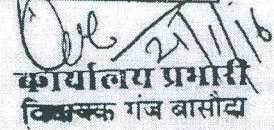 21/1/16
कार्यालय प्रभारी
गंज बासौदा